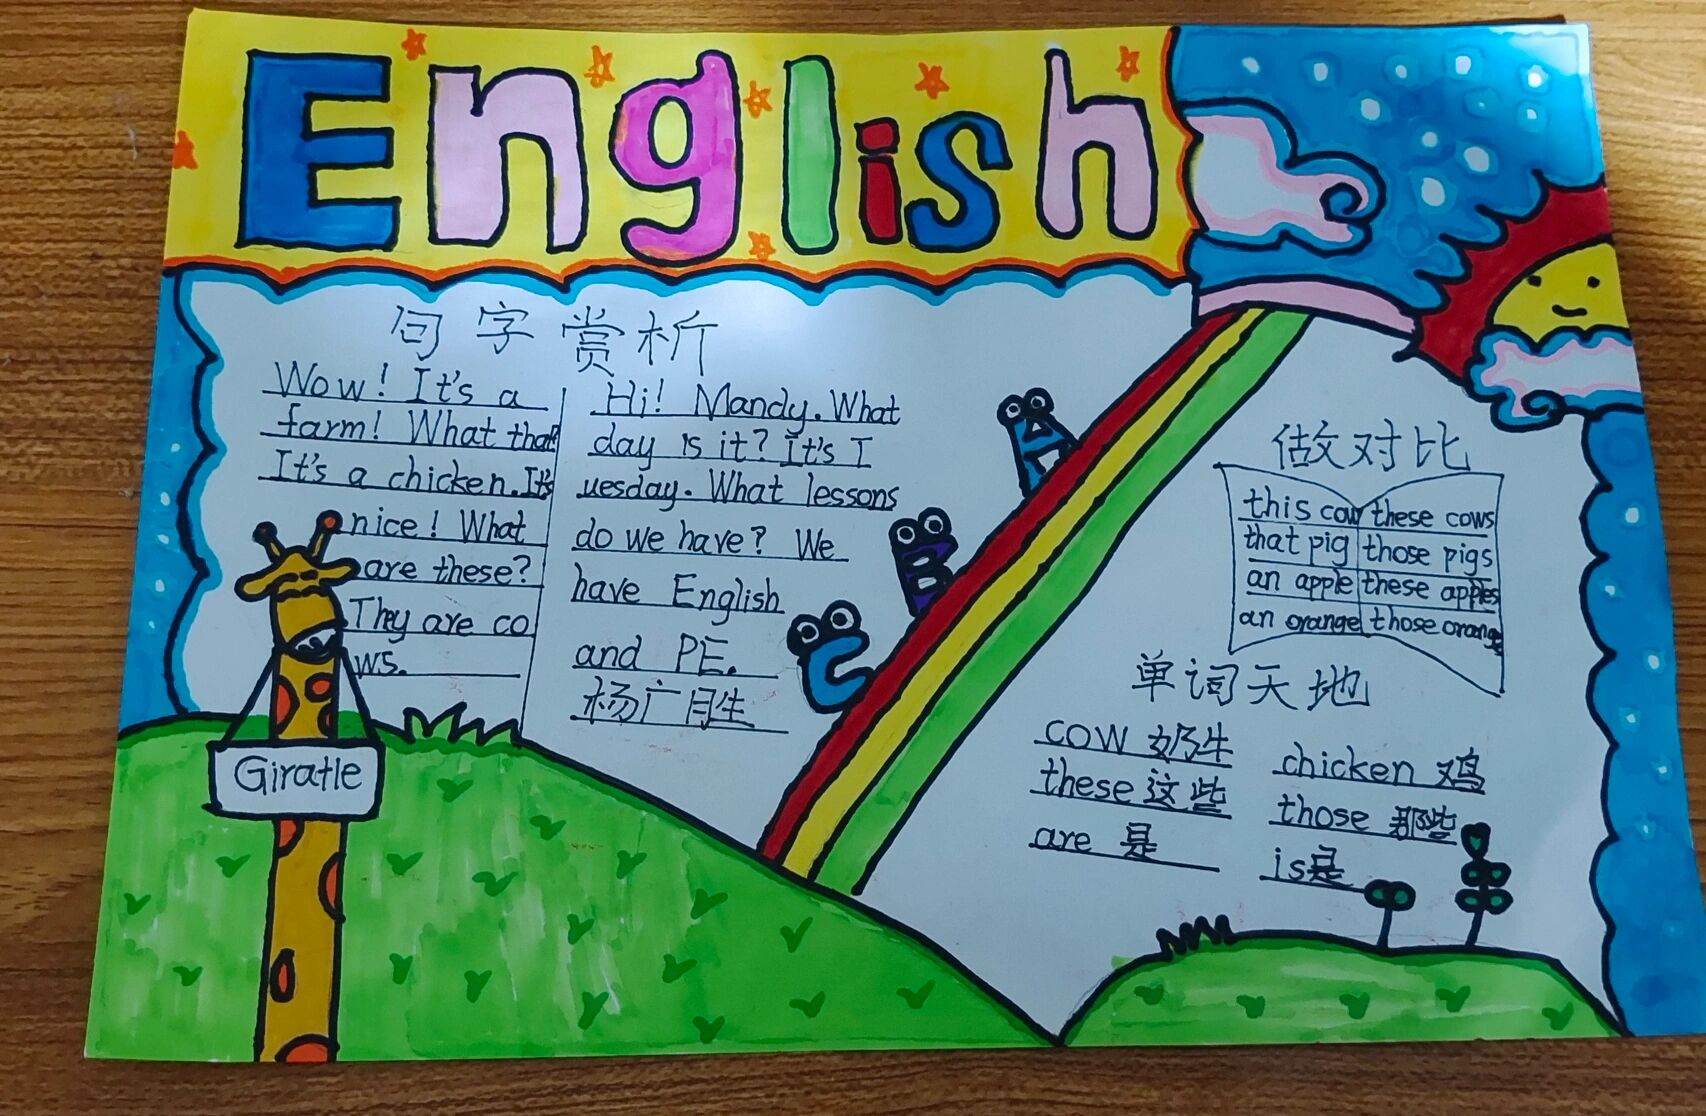 English
句字赏析
Wow! It's a
farm! What that
It's a chicken. It's
nice! What
are these?
They are co
ws.
Hi! Mandy. What
day is it? It's T
uesday. What lessons
do we have? We
have English
and PE.
杨广月生
A
B
C
做对比
this cow these cows
that pig those pigs
an apple these apples
an orange those orange
单词天地
cow 奶牛
these 这些
are 是
chicken 鸡
those 那些
is是
Giratle